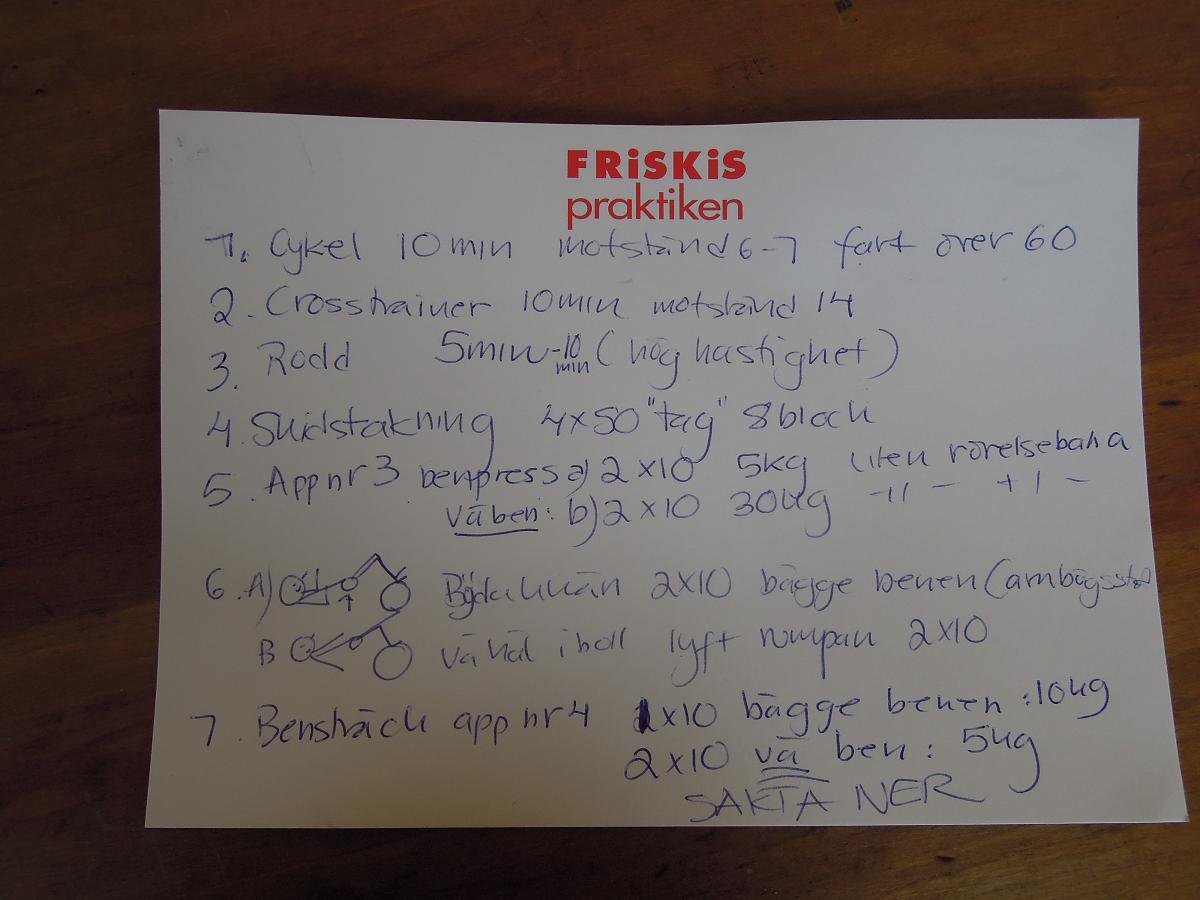 FRiSKiS
praktiken
1. Cykel 10 min motstånd 6-7 fart över 60
2. Crosstrainer 10 min motstånd 14
3. Rodd 5min-10 min (hög hastighet)
4. Skidstakning 4x50 "tag" 8 block
5. App nr 3 benpress a) 2x10 5kg liten rörelsebana
vä ben: b) 2x10 30kg -11- -11-
6. A) Böjda knän 2x10 bägge benen (armbågsstöd
B vä häl i boll lyft rumpan 2x10
7. Bensträck app nr 4 1x10 bägge benen: 10kg
2x10 vä ben: 5kg
SAKTA NER